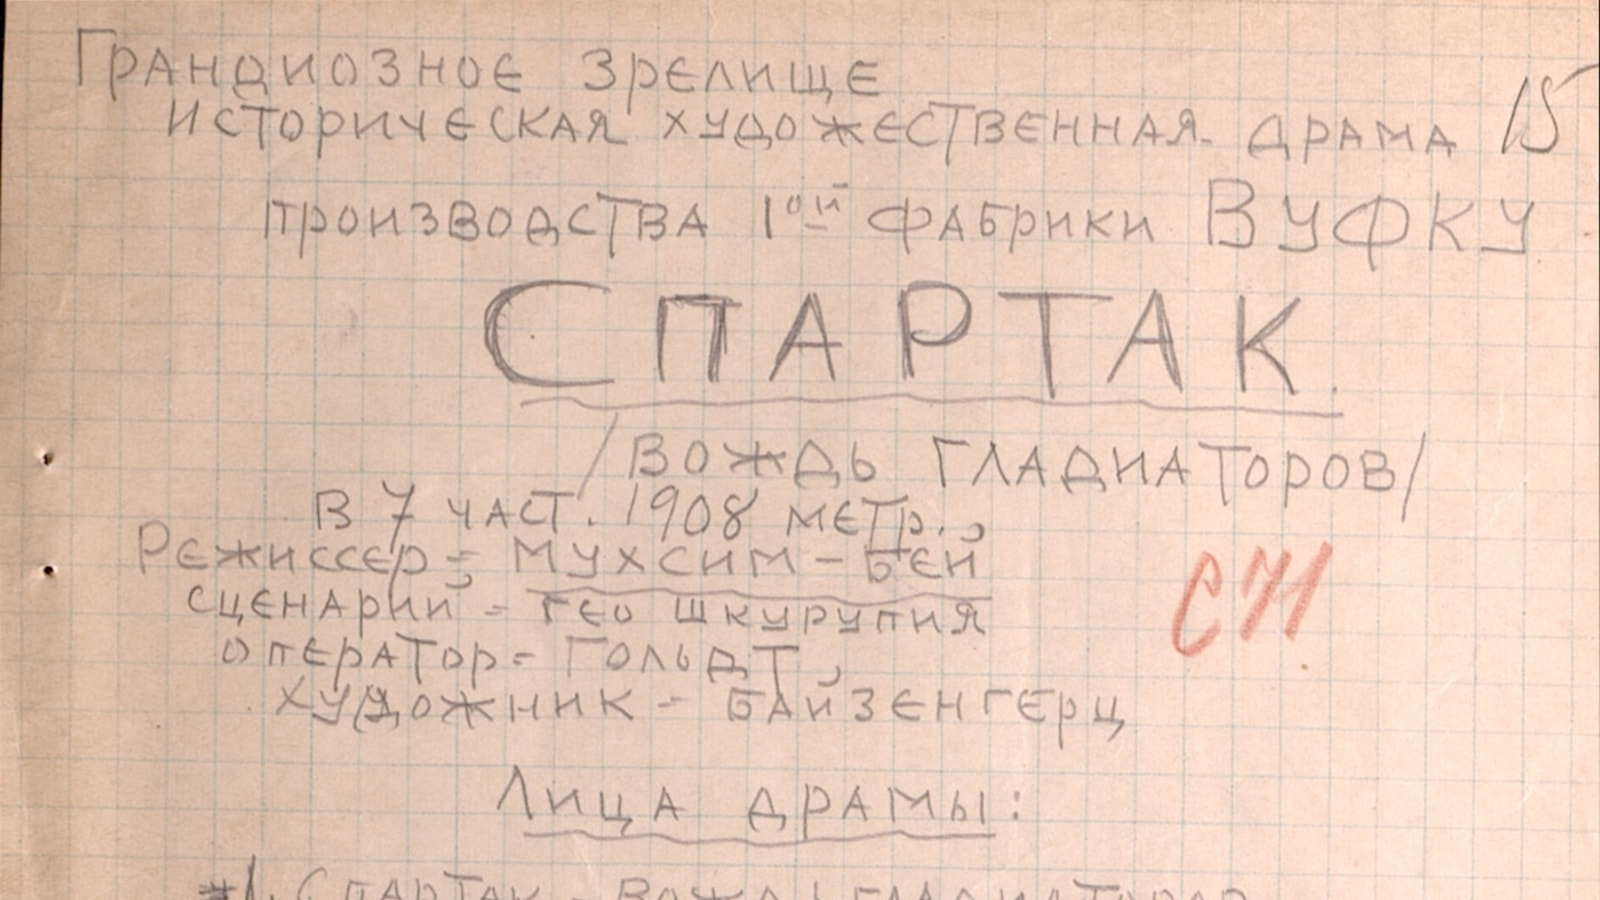 Грандиозное зрелище
историческая художественная драма 15
производства 1ой фабрики ВУФКУ
СПАРТАК.
/вождь гладиаторов/
в 7 част. 1908 метр.,
Режиссер = Мухсим-Бей
сценарий - гео шкурупия
оператор - Гольдт,
художник - Байзенгерц
С71
Лица драмы:
1. Спартак - вождь гладиаторов